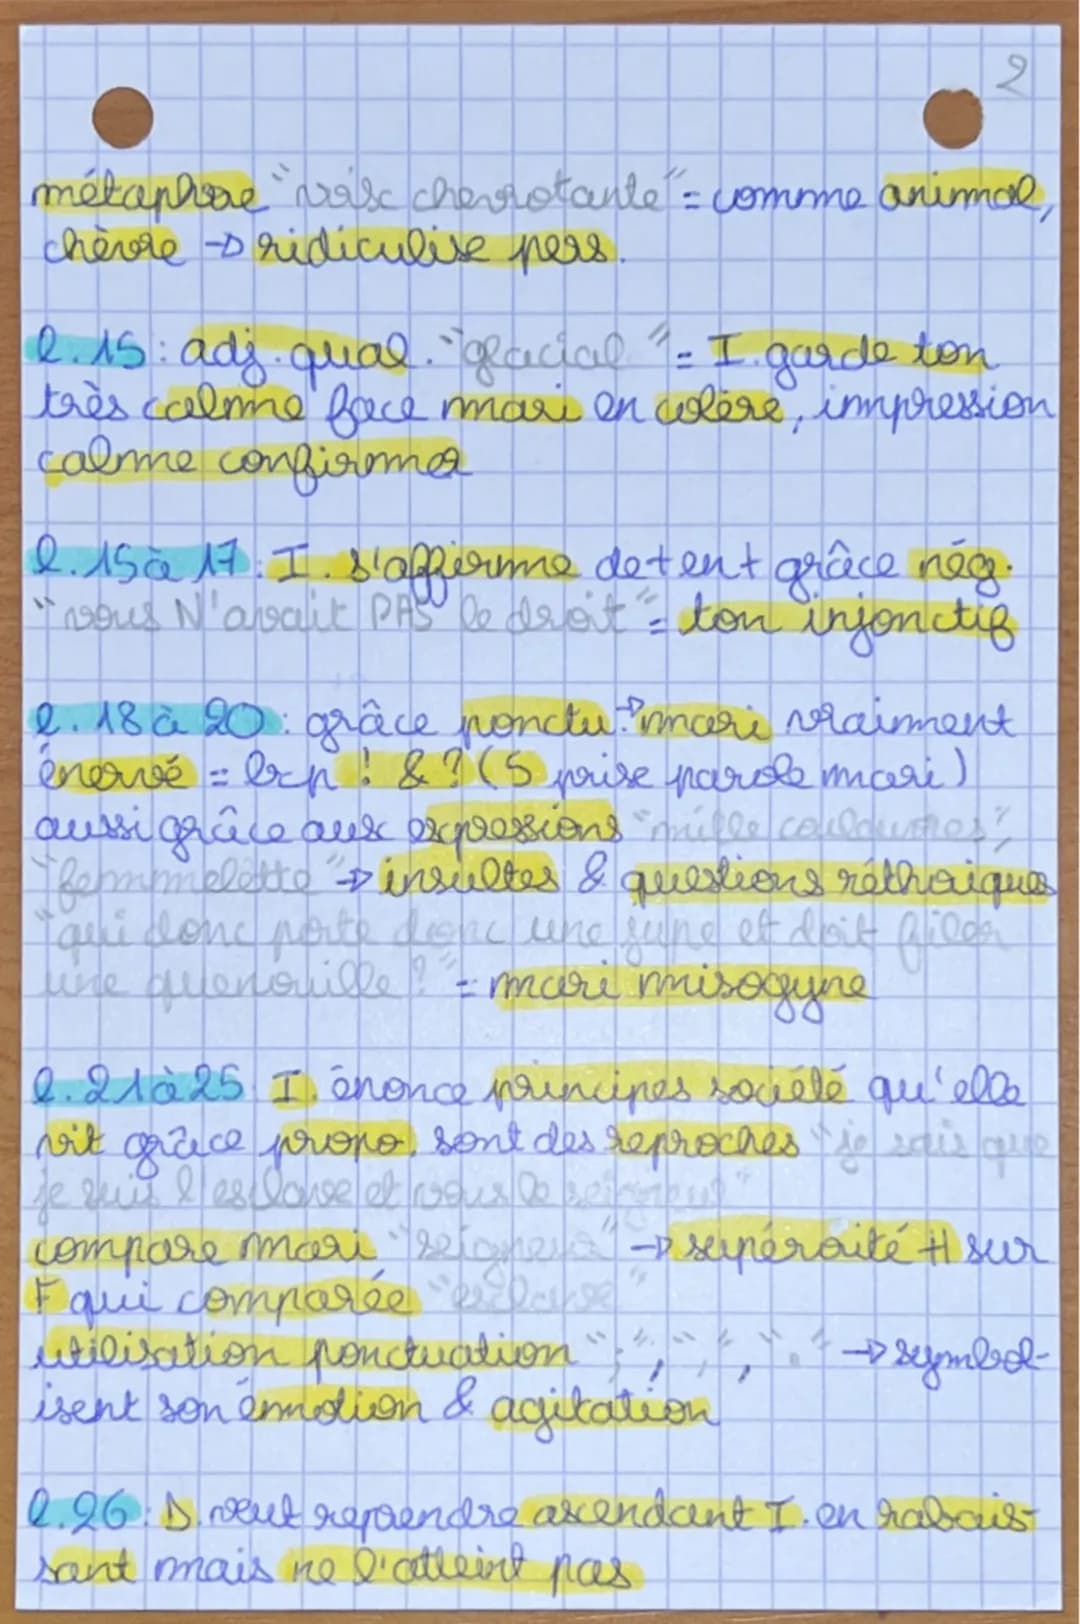 2
métaphore "voix chevrotante" = comme animal,
chèvre → ridiculise pers.
l.15 : adj. qual. "glacial" = I. garde ton
très calme face mari en colère, impression
calme confirmer
l.15 à 17 : I. s'affirme de+en+ grâce nég.
"vous N'avait PAS le droit" = ton injonctif
l.18 à 20 : grâce ponctu. → mari vraiment
énervé = bcp ! & ? (5 prise parole mari)
aussi grâce aux expressions "mille couleuvres",
"femmelette" → insultes & questions réthoriques
"qui donc porte donc une jupe et doit filer
une quenouille ?" = mari misogyne
l.21 à 25 I. énonce principes société qu'elle
vit grâce propo. sont des reproches "je sais que
je suis l'esclave et vous le seigneur"
compare mari "seigneur" → supéroité H sur
F qui comparée "esclave"
utilisation ponctuation ";", ",", "." → symbol-
isent son émotion & agitation
l.26 : D. veut reprendre ascendant I. en rabais-
sant mais ne l'atteint pas